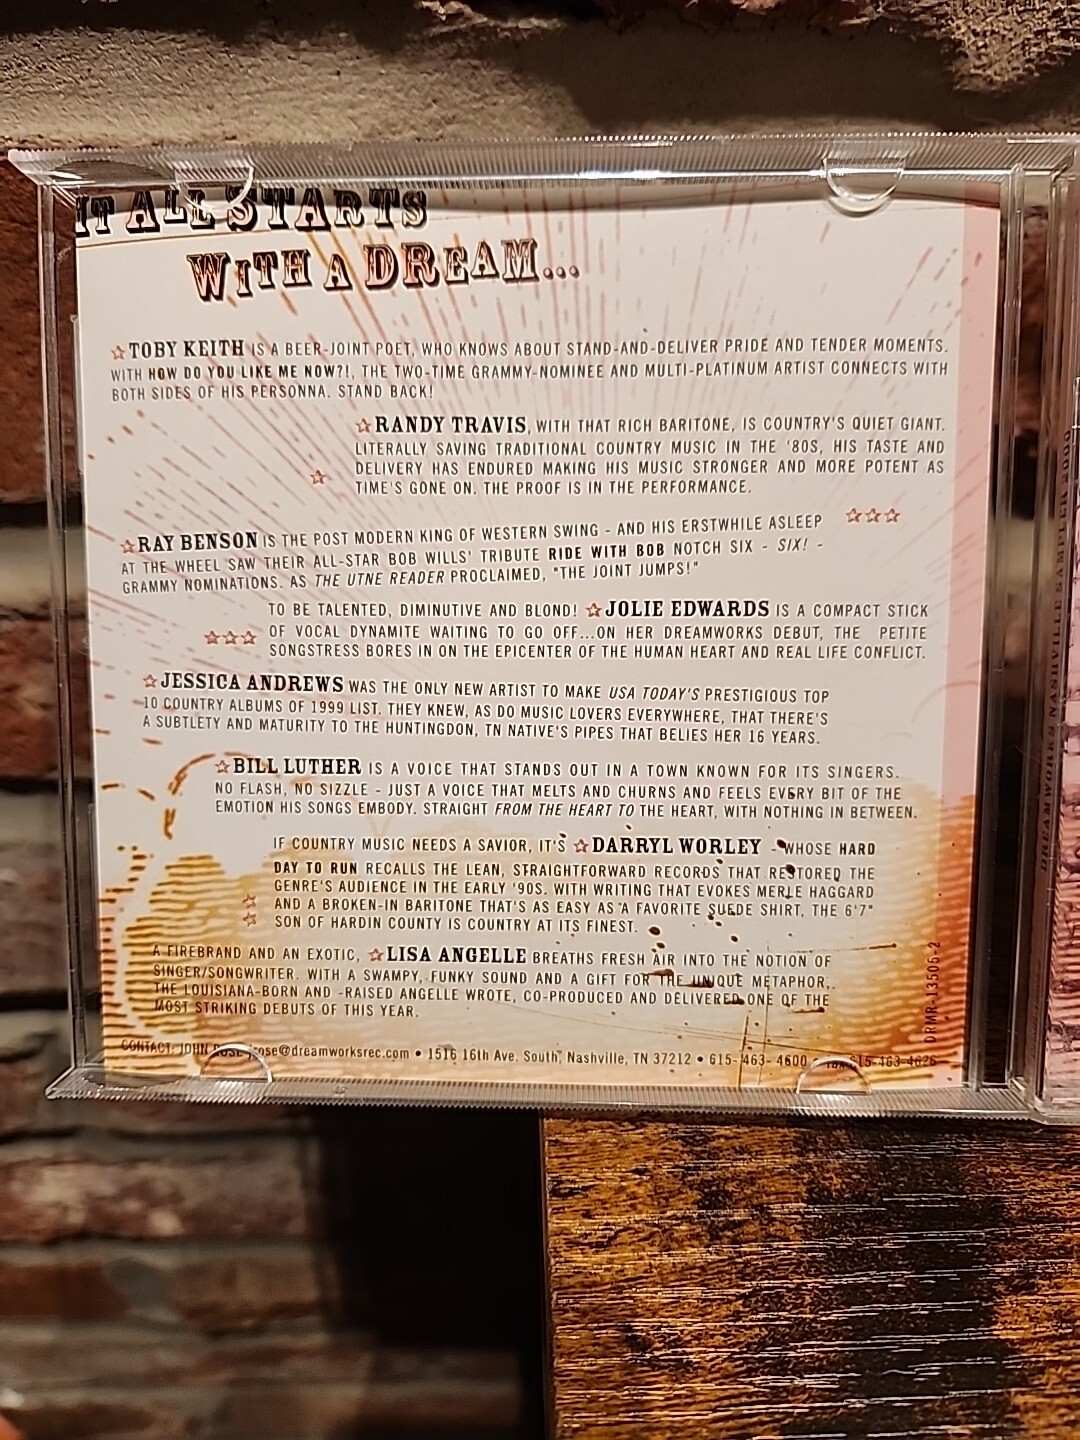 IT ALL STARTS
WITH A DREAM...
☆TOBY KEITH IS A BEER-JOINT POET, WHO KNOWS ABOUT STAND-AND-DELIVER PRIDE AND TENDER MOMENTS.
WITH HOW DO YOU LIKE ME NOW?!, THE TWO-TIME GRAMMY-NOMINEE AND MULTI-PLATINUM ARTIST CONNECTS WITH
BOTH SIDES OF HIS PERSONNA. STAND BACK!
☆RANDY TRAVIS, WITH THAT RICH BARITONE, IS COUNTRY'S QUIET GIANT.
LITERALLY SAVING TRADITIONAL COUNTRY MUSIC IN THE '80S, HIS TASTE AND
DELIVERY HAS ENDURED MAKING HIS MUSIC STRONGER AND MORE POTENT AS
TIME'S GONE ON. THE PROOF IS IN THE PERFORMANCE.
☆RAY BENSON IS THE POST MODERN KING OF WESTERN SWING - AND HIS ERSTWHILE ASLEEP
AT THE WHEEL SAW THEIR ALL-STAR BOB WILLS' TRIBUTE RIDE WITH BOB NOTCH SIX - SIX! -
GRAMMY NOMINATIONS. AS THE UTNE READER PROCLAIMED, "THE JOINT JUMPS!"
TO BE TALENTED, DIMINUTIVE AND BLOND! ☆JOLIE EDWARDS IS A COMPACT STICK
OF VOCAL DYNAMITE WAITING TO GO OFF...ON HER DREAMWORKS DEBUT, THE PETITE
SONGSTRESS BORES IN ON THE EPICENTER OF THE HUMAN HEART AND REAL LIFE CONFLICT.
☆JESSICA ANDREWS WAS THE ONLY NEW ARTIST TO MAKE USA TODAY'S PRESTIGIOUS TOP
10 COUNTRY ALBUMS OF 1999 LIST. THEY KNEW, AS DO MUSIC LOVERS EVERYWHERE, THAT THERE'S
A SUBTLETY AND MATURITY TO THE HUNTINGDON, TN NATIVE'S PIPES THAT BELIES HER 16 YEARS.
☆BILL LUTHER IS A VOICE THAT STANDS OUT IN A TOWN KNOWN FOR ITS SINGERS.
NO FLASH, NO SIZZLE - JUST A VOICE THAT MELTS AND CHURNS AND FEELS EVERY BIT OF THE
EMOTION HIS SONGS EMBODY. STRAIGHT FROM THE HEART TO THE HEART, WITH NOTHING IN BETWEEN.
IF COUNTRY MUSIC NEEDS A SAVIOR, IT'S ☆DARRYL WORLEY - WHOSE HARD
DAY TO RUN RECALLS THE LEAN, STRAIGHTFORWARD RECORDS THAT RESTORED THE
GENRE'S AUDIENCE IN THE EARLY '90S. WITH WRITING THAT EVOKES MERLE HAGGARD
AND A BROKEN-IN BARITONE THAT'S AS EASY AS A FAVORITE SUEDE SHIRT, THE 6'7"
SON OF HARDIN COUNTY IS COUNTRY AT ITS FINEST.
A FIREBRAND AND AN EXOTIC, ☆LISA ANGELLE BREATHS FRESH AIR INTO THE NOTION OF
SINGER/SONGWRITER. WITH A SWAMPY, FUNKY SOUND AND A GIFT FOR THE UNIQUE METAPHOR,
THE LOUISIANA-BORN AND -RAISED ANGELLE WROTE, CO-PRODUCED AND DELIVERED ONE OF THE
MOST STRIKING DEBUTS OF THIS YEAR.
CONTACT: JOHN ROSE jrose@dreamworksrec.com • 1516 16th Ave. South, Nashville, TN 37212 • 615-463-4600 • fax 615-463-4626
DRMR-13505-2
DREAMWORKS NASHVILLE SAMPLER 2000